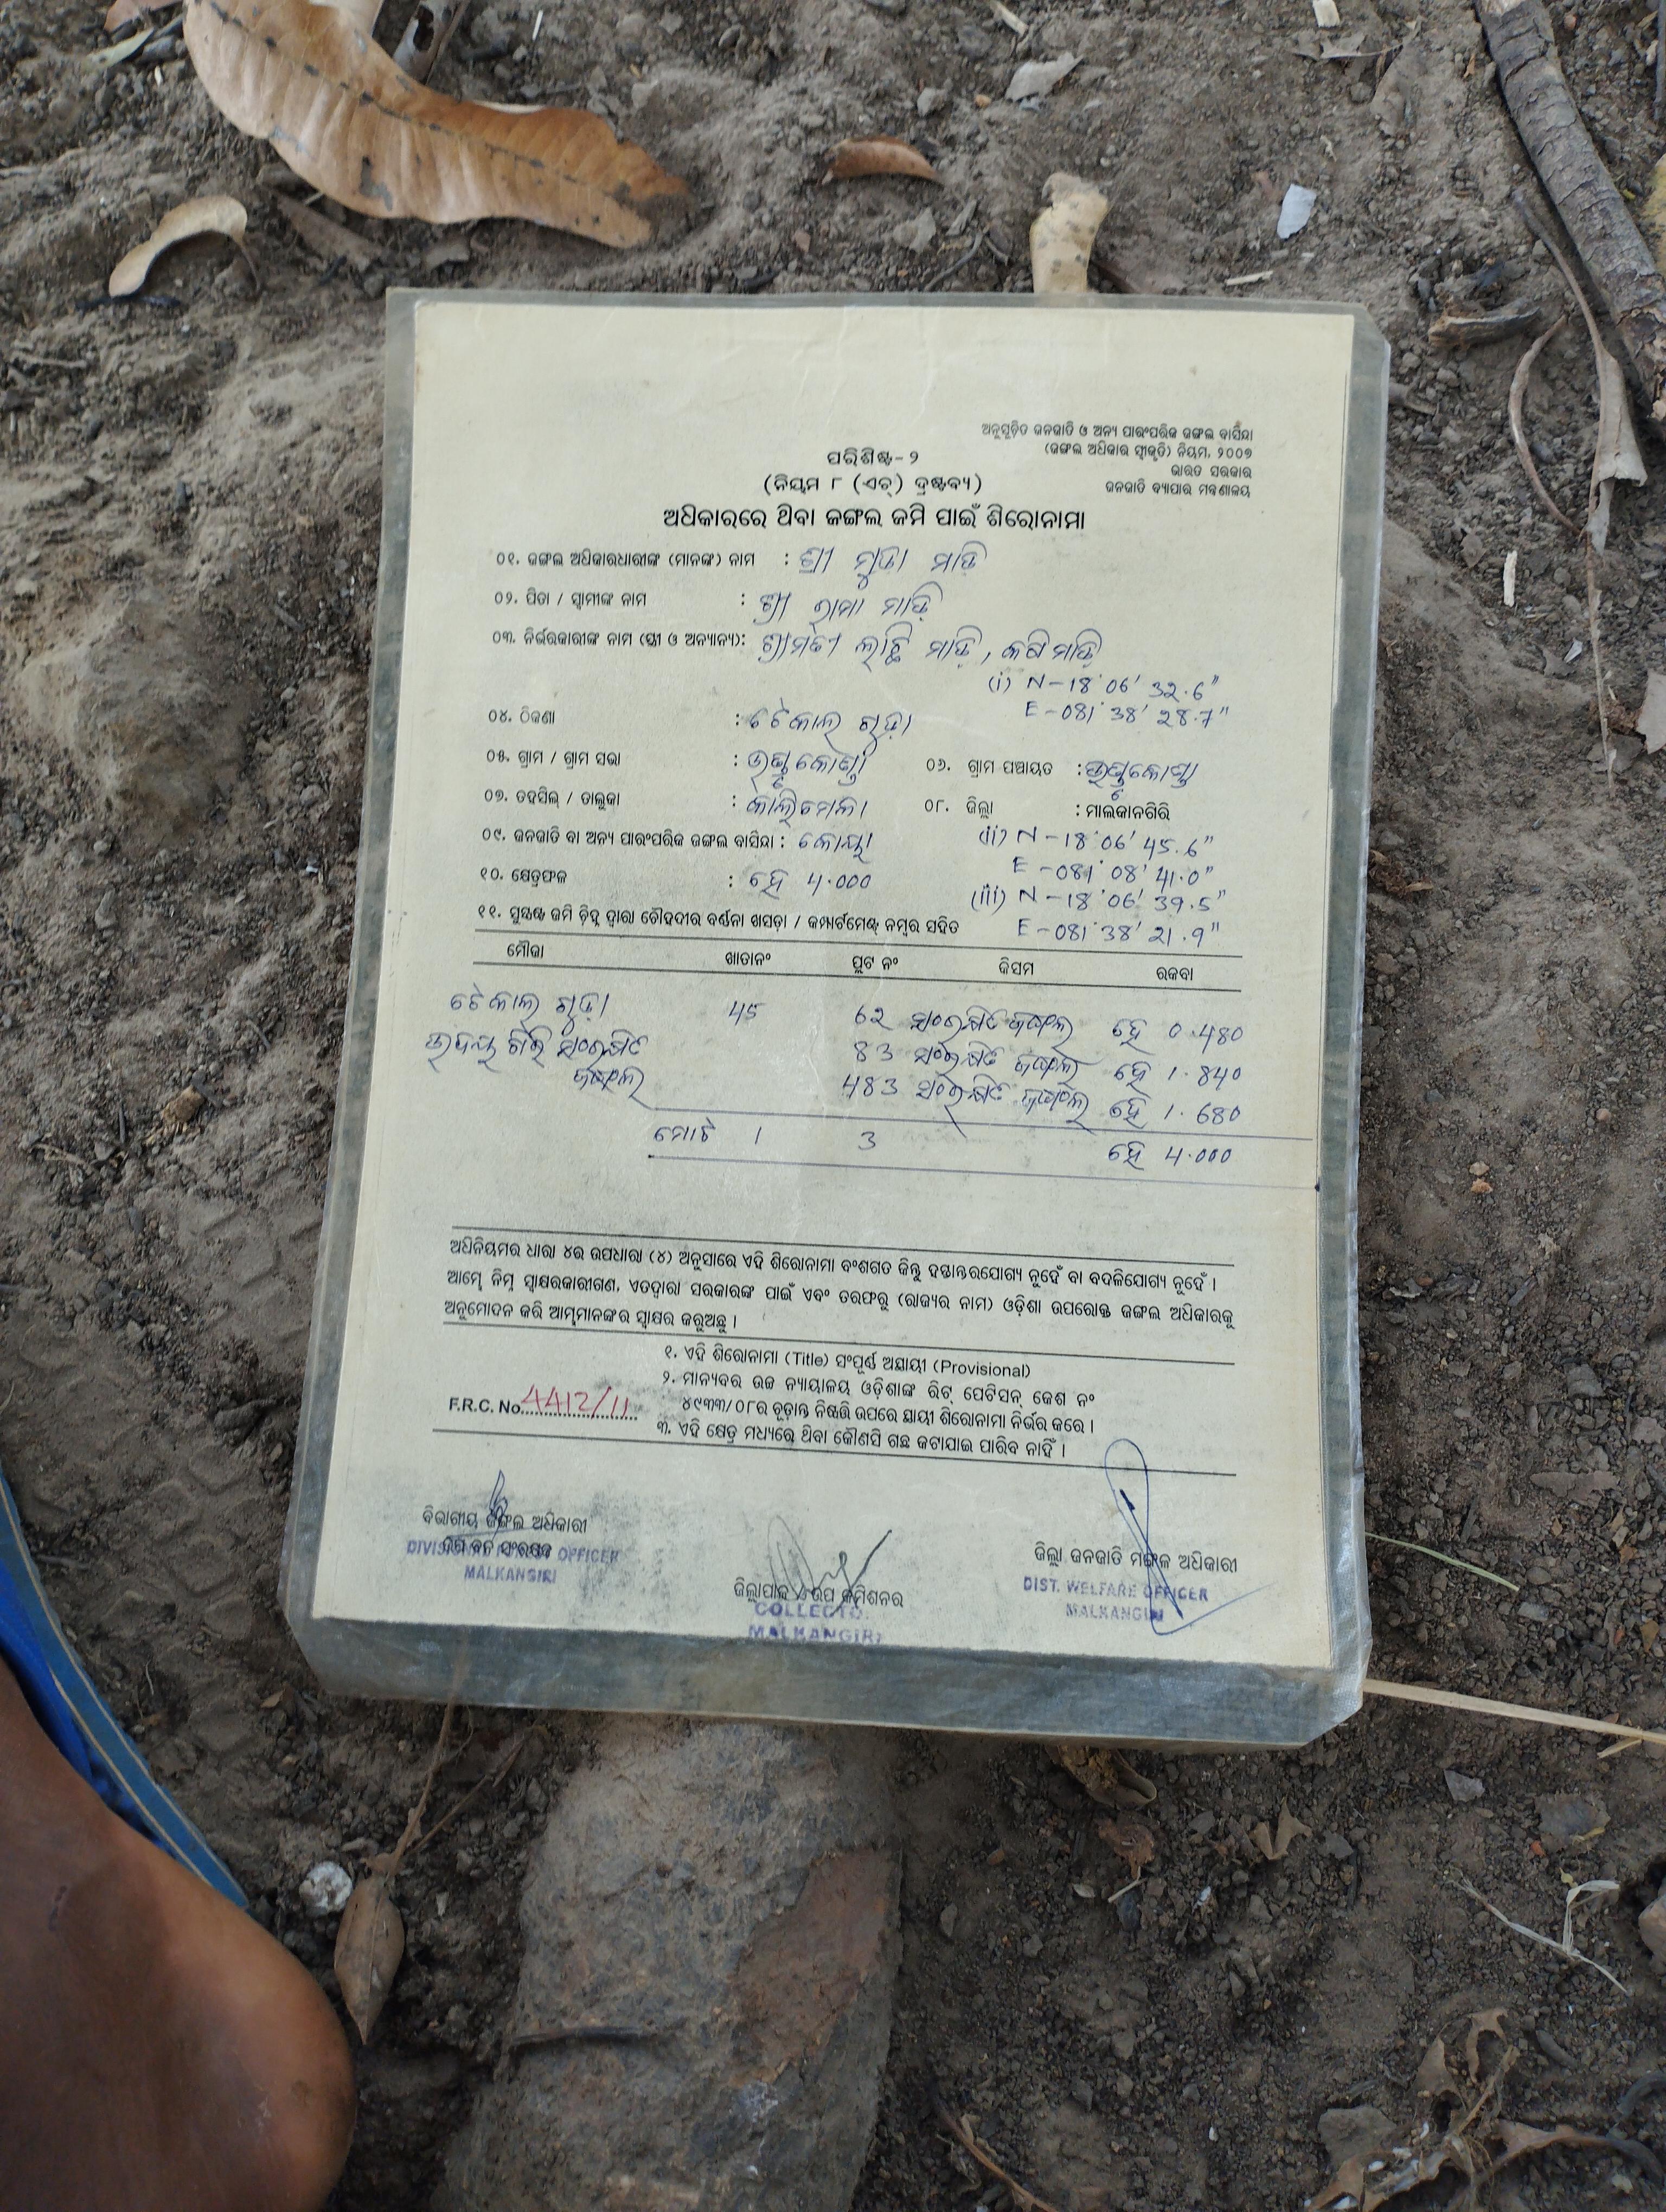 ଅନୁସୂଚିତ ଜନଜାତି ଓ ଅନ୍ୟ ପାରଂପରିକ ଜଙ୍ଗଲ ବାସିନ୍ଦା
(ଜଙ୍ଗଲ ଅଧିକାର ସ୍ୱୀକୃତି) ନିୟମ, ୨୦୦୭
ଭାରତ ସରକାର
ଜନଜାତି ବ୍ୟାପାର ମନ୍ତ୍ରଣାଳୟ
ପରିଶିଷ୍ଟ-୨
(ନିୟମ ୮ (ଏଚ୍) ଦ୍ରଷ୍ଟବ୍ୟ)
ଅଧିକାରରେ ଥିବା ଜଙ୍ଗଲ ଜମି ପାଇଁ ଶିରୋନାମା
୦୧. ଜଙ୍ଗଲ ଅଧିକାରଧାରୀଙ୍କ (ମାନଙ୍କ) ନାମ : ଶ୍ରୀ ମୁଡା ମାଡ଼ି
୦୨. ପିତା / ସ୍ୱାମୀଙ୍କ ନାମ : ଶ୍ରୀ ରାମା ମାଡ଼ି
୦୩. ନିର୍ଭରକାରୀଙ୍କ ନାମ (ସ୍ତ୍ରୀ ଓ ଅନ୍ୟାନ୍ୟ): ଶ୍ରୀମତୀ ଲାଛି ମାଡ଼ି,
(i) N-18°06' 32.6"
E-081°38' 28.7"
୦୪. ଠିକଣା : ଟେକାଲ ଗୁଡ଼ା
୦୫. ଗ୍ରାମ / ଗ୍ରାମ ସଭା : ୦୬. ଗ୍ରାମ ପଞ୍ଚାୟତ :
୦୭. ତହସିଲ୍ / ତାଲୁକା : କାଲିମେଳା ୦୮. ଜିଲ୍ଲା : ମାଲକାନଗିରି
୦୯. ଜନଜାତି ବା ଅନ୍ୟ ପାରଂପରିକ ଜଙ୍ଗଲ ବାସିନ୍ଦା : କୋୟା
(ii) N-18°06' 45.6"
E-081°08' 41.0"
୧୦. କ୍ଷେତ୍ରଫଳ : ହେ 4.000
(iii) N-18°06' 39.5"
E-081°38' 21.9"
୧୧. ସୁସ୍ପଷ୍ଟ ଜମି ଚିହ୍ନ ଦ୍ୱାରା ଚୌହଦୀର ବର୍ଣ୍ଣନା ଖସଡ଼ା / କମ୍ପାର୍ଟମେଣ୍ଟ ନମ୍ବର ସହିତ
ମୌଜା ଖାତାନଂ ପ୍ଲଟ ନଂ କିସମ ରକବା
ଟେକାଲ ଗୁଡ଼ା 45 62 ସଂରକ୍ଷିତ ଜଙ୍ଗଲ ହେ 0.480
ଉଦୟ ଗିରି ସଂରକ୍ଷିତ 83 ସଂରକ୍ଷିତ ଜଙ୍ଗଲ ହେ 1.840
ଜଙ୍ଗଲ 483 ସଂରକ୍ଷିତ ଜଙ୍ଗଲ ହେ 1.680
ମୋଟ 1 3 ହେ 4.000
ଅଧିନିୟମର ଧାରା ୪ର ଉପଧାରା (୪) ଅନୁସାରେ ଏହି ଶିରୋନାମା ବଂଶଗତ କିନ୍ତୁ ହସ୍ତାନ୍ତରଯୋଗ୍ୟ ନୁହେଁ ବା ବଦଳିଯୋଗ୍ୟ ନୁହେଁ ।
ଆମ୍ଭେ ନିମ୍ନ ସ୍ୱାକ୍ଷରକାରୀଗଣ, ଏତଦ୍ୱାରା ସରକାରଙ୍କ ପାଇଁ ଏବଂ ତରଫରୁ (ରାଜ୍ୟର ନାମ) ଓଡ଼ିଶା ଉପରୋକ୍ତ ଜଙ୍ଗଲ ଅଧିକାରକୁ
ଅନୁମୋଦନ କରି ଆମ୍ଭମାନଙ୍କର ସ୍ୱାକ୍ଷର କରୁଅଛୁ ।
୧. ଏହି ଶିରୋନାମା (Title) ସଂପୂର୍ଣ୍ଣ ଅସ୍ଥାୟୀ (Provisional)
୨. ମାନ୍ୟବର ଉଚ୍ଚ ନ୍ୟାୟାଳୟ ଓଡ଼ିଶାଙ୍କ ରିଟ୍ ପେଟିସନ୍ କେଶ ନଂ
୪୯୩୩/୦୮ର ଚୂଡ଼ାନ୍ତ ନିଷ୍ପତ୍ତି ଉପରେ ସ୍ଥାୟୀ ଶିରୋନାମା ନିର୍ଭର କରେ ।
F.R.C. No. 4412/11
୩. ଏହି କ୍ଷେତ୍ର ମଧ୍ୟରେ ଥିବା କୌଣସି ଗଛ କଟାଯାଇ ପାରିବ ନାହିଁ ।
ବିଭାଗୀୟ ଜଙ୍ଗଲ ଅଧିକାରୀ
ଉପ ବନ ସଂରକ୍ଷକ
DIVISIONAL FOREST OFFICER
MALKANGIRI
ଜିଲ୍ଲାପାଳ ଓ ଉପ କମିଶନର
COLLECTOR
MALKANGIRI
ଜିଲ୍ଲା ଜନଜାତି ମଙ୍ଗଳ ଅଧିକାରୀ
DIST. WELFARE OFFICER
MALKANGIRI